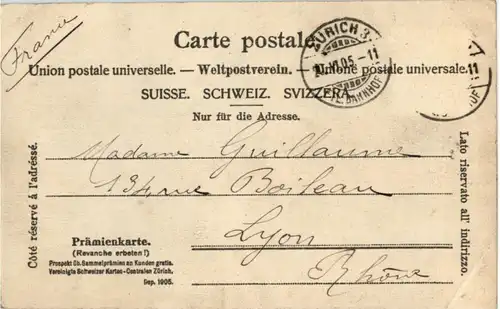 France
Carte postale
ZÜRICH 3.
VI.05.-11
FIL. BAHNHOF
11
HOF
Union postale universelle. — Weltpostverein. — Unione postale universale.
SUISSE. SCHWEIZ. SVIZZERA.
Nur für die Adresse.
Côté réservé à l'adresse.
Lato riservato all' indirizzo.
Madame Guillaume
134 rue Boileau
Lyon
Rhône
Prämienkarte.
(Revanche erbeten!)
Prospekt üb. Sammelprämien an Kunden gratis.
Vereinigte Schweizer Karten-Centralen Zürich.
Sep. 1905.